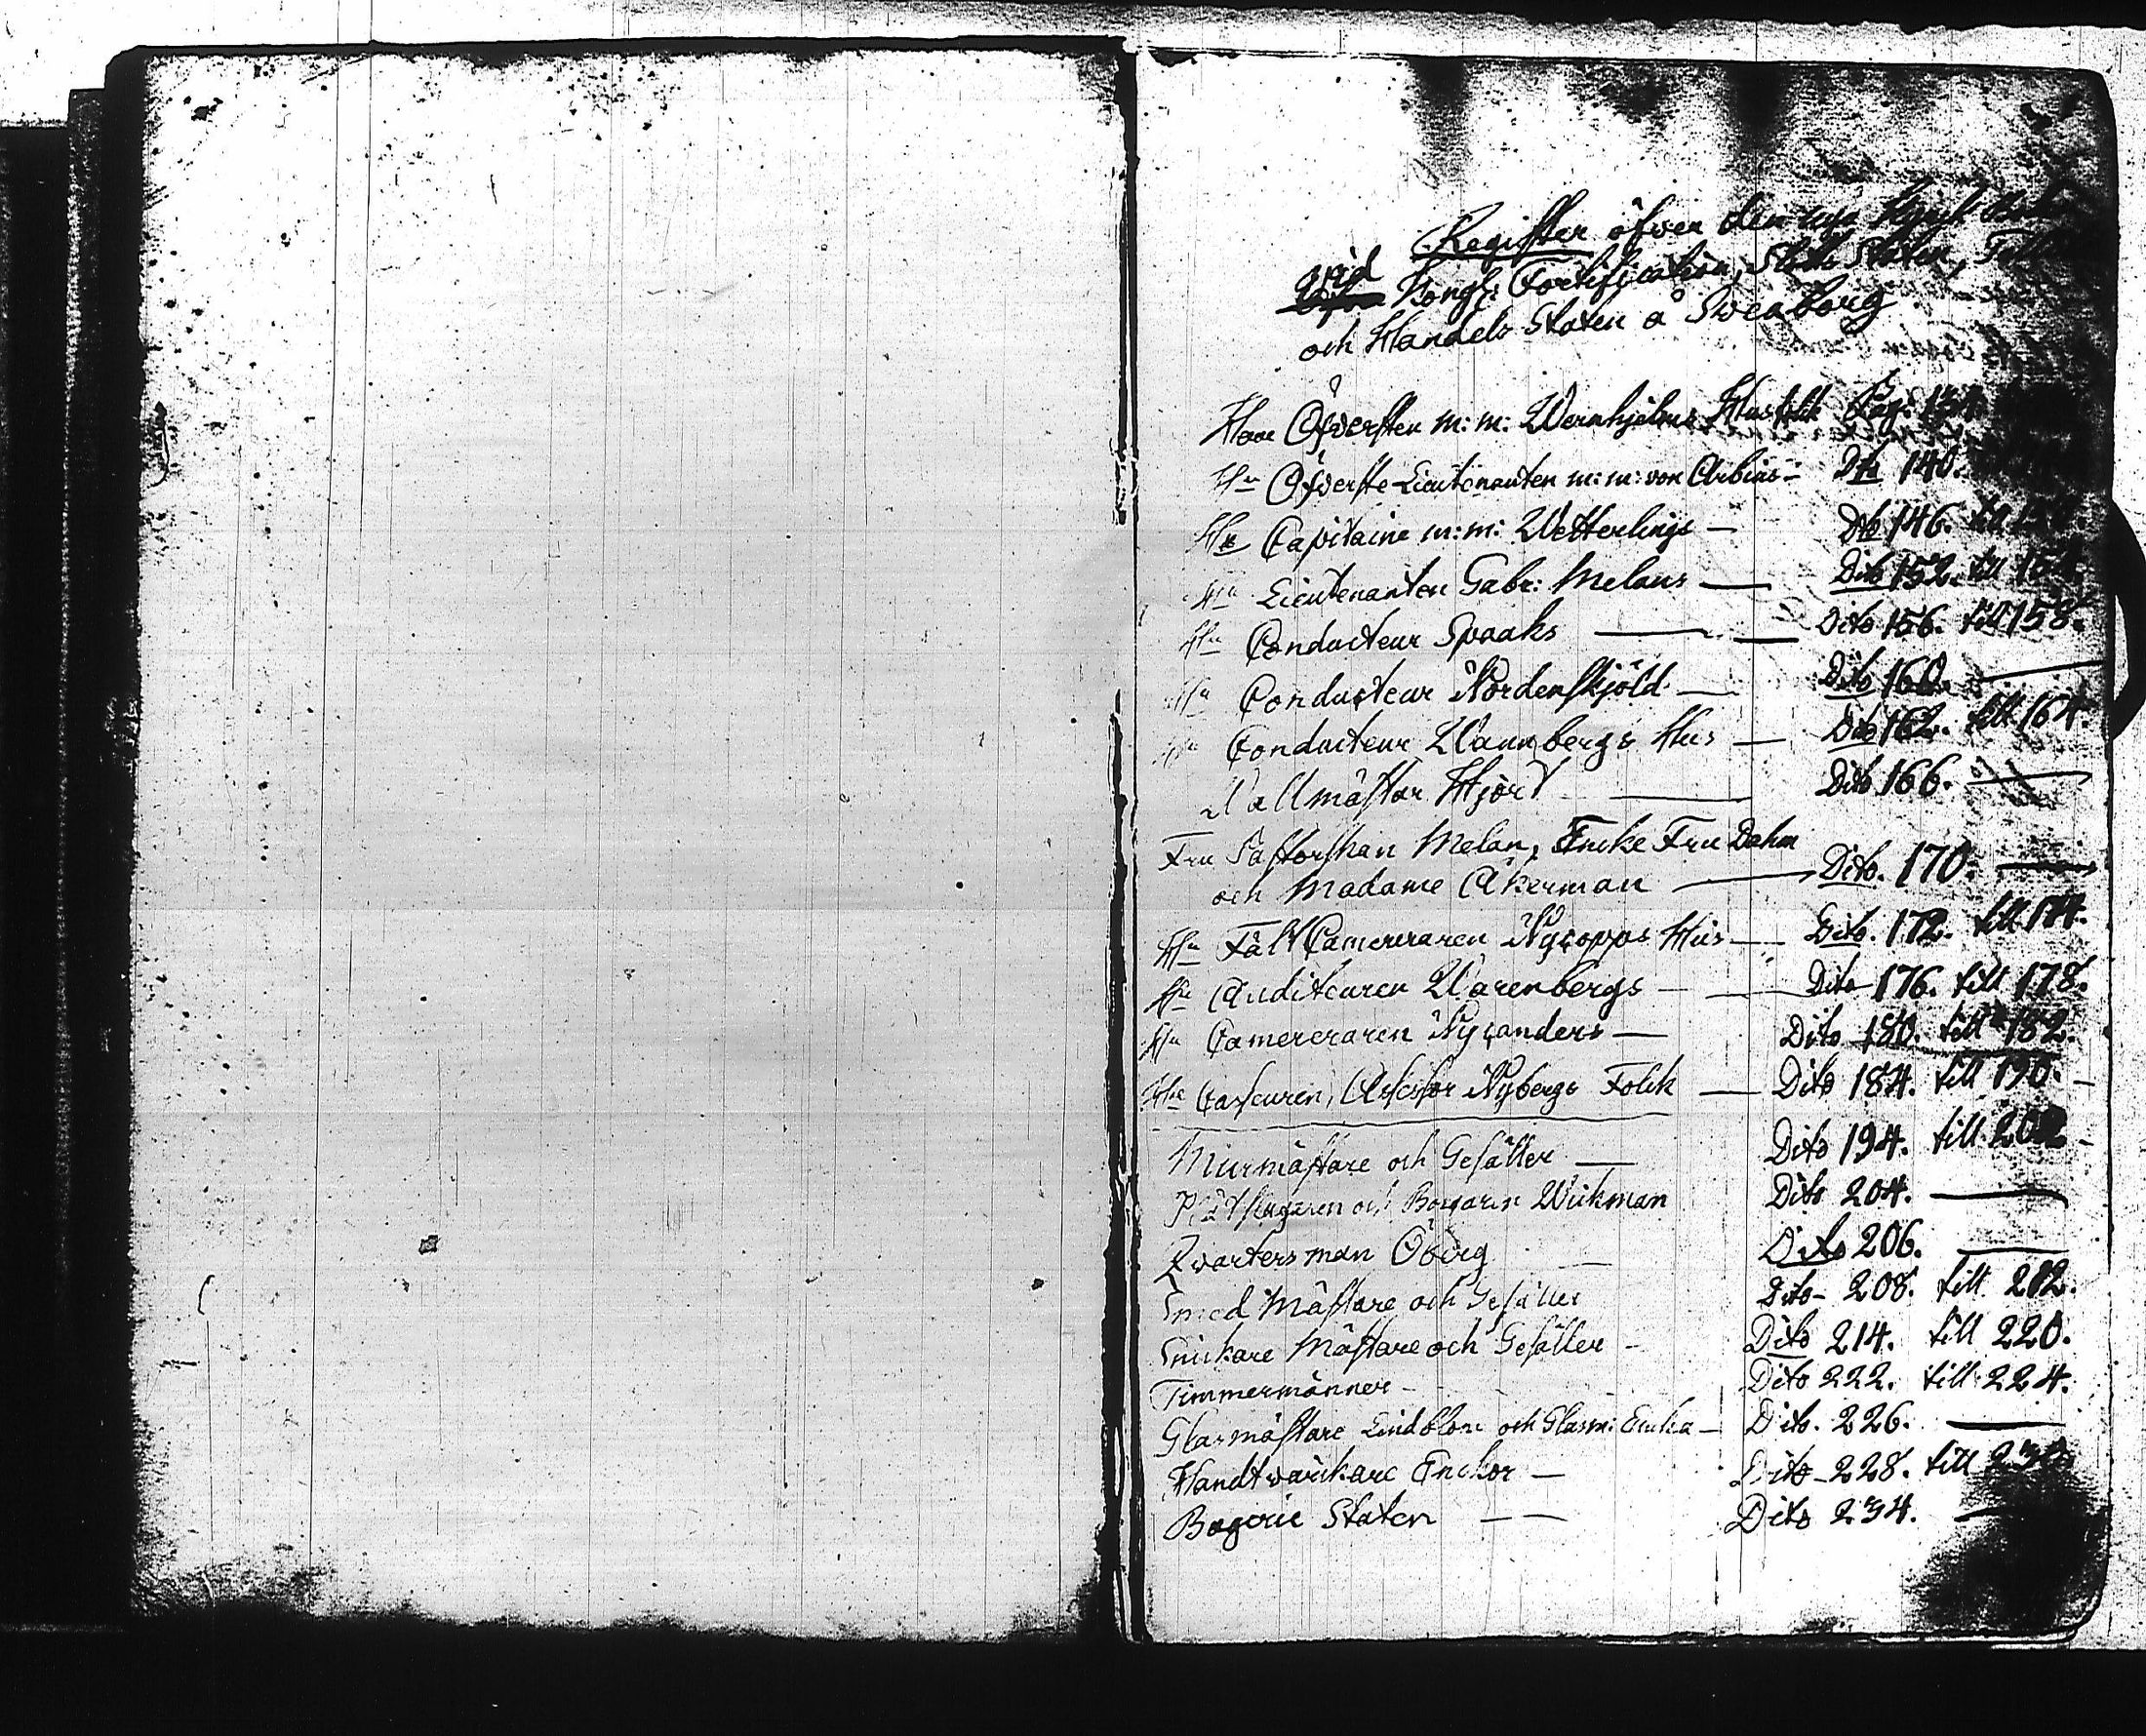 Register öfwer den nya
wid Kongl: Fortification, Slotts Staten,
och Handels Staten å Sweaborg
Herr Öfwersten m: m: Wernhjelms Husfolk Pag: 134
Hr Öfwerste Lieutenanten m: m: von Arbins - Dto 140.
Hr Capitaine m: m: Wetterlings — Dto 146. till
Hr Lieutenanten Gabr: Melans — Dito 152. till 154.
Hr Conducteur Spaaks — Dito 156. till 158.
Hr Conducteur Nordenskjöld — Dito 160. —
Hr Conducteur Wannbergs Hus — Dito 162. till 164.
Wallmästar Hjort — Dito 166. —
Fru Pastorskan Melan, Encke Fru Dahm
och Madame Åkerman — Dito. 170. —
Hr Fält Camereraren Nycopps Hus — Dito. 172. till 174.
Hr Auditeuren Warenbergs — Dito 176. till 178.
Hr Camereraren Nycanders — Dito 180. till 182.
Hr Casseuren, Assessor Nybergs Folck — Dito 184. till 190. -
Murmästare och Gesäller — Dito 194. till 202 -
Plåtslagaren och Borgaren Wickman Dito 204. —
Qwartersman Öberg — Dito 206. —
Smed Mästare och Gesäller Dito - 208. till 212.
Snickare Mästare och Gesäller - Dito 214. till 220.
Timmermänner - Dito 222. till 224.
Glasmästare Lindblom och Glasm: Encka — Dito. 226. —
Handtwärckare Enckor — Dito - 228. till 230
Bagerie Staten — — Dito 234. —